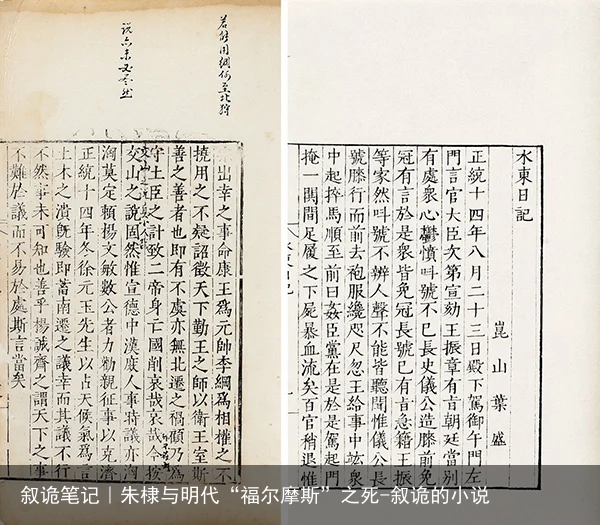 水東日記
崑山葉盛
正統十四年八月二十三日殿下駕御午門左
門言官大臣次第宣劾王振章有旨朝廷當別
有處衆心鬱憤呌號不已長史儀公造膝前免
冠有言於是衆皆免冠長號已有旨意籍王振
等家然呌號不辨人聲不能皆聽聞惟儀公長
號膝行而前去袍服纔咫尺忽王給事中竑衆
中起捽馬順至前曰姦臣黨在是於是駕起門
掩一閧間足履之下屍暴血流矣百官稍退惟
若能用綱何至北狩
說亦未必盡然
出幸之事命康王爲元帥李綱爲相權之不
撓用之不疑詔徵天下勤王之師以衛王室斯
善之善者也即有不虞亦無北遷之禍顧乃爲
守土臣之計致二帝身亡國削哀哉哀哉今按
交山之說固然惟宣德中漢庶人事時議亦洶
洶莫定賴揚文敏數公者力勸親征事以克濟
正統十四年冬徐元玉先生以占天候氣爲言
土木之潰旣驗即蓄南遷之議幸而其議不行
不然事未可知也善乎揚誠齊之謂天下之事
不難於議而不易於處斯言當矣
叙诡笔记｜朱棣与明代“福尔摩斯”之死-叙诡的小说